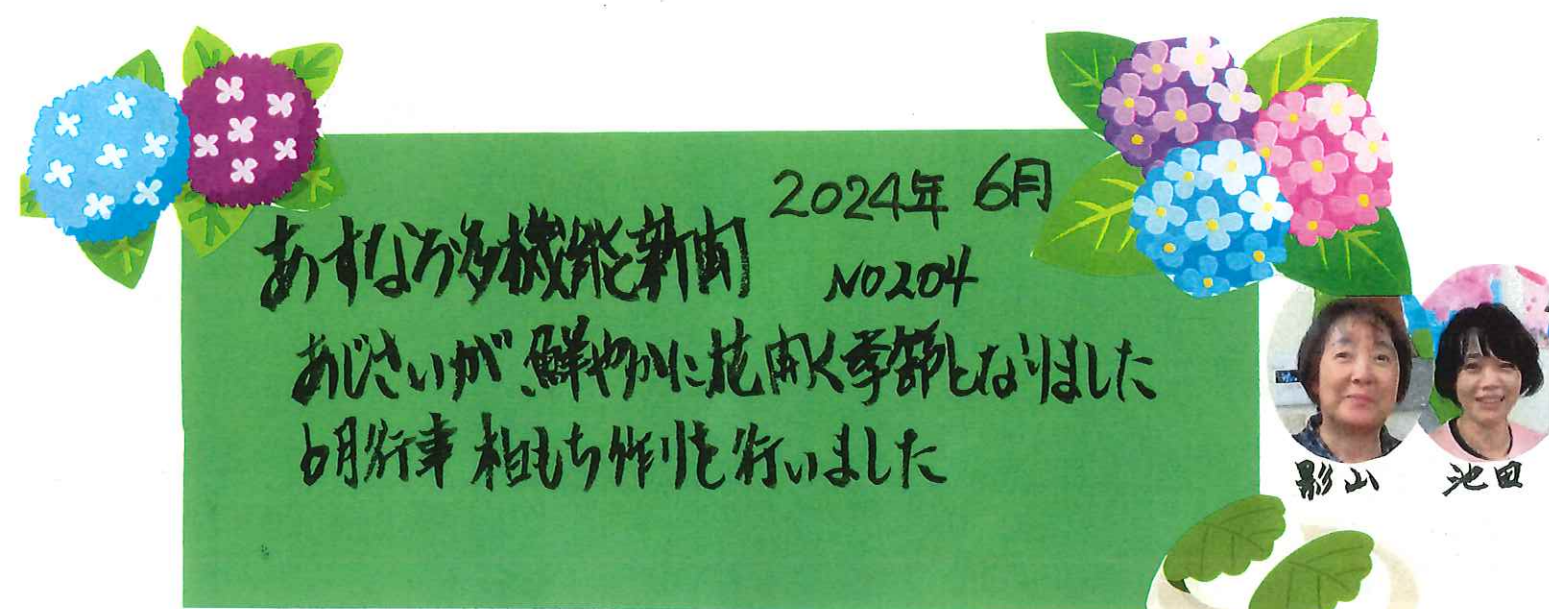 2024年 6月
あすなろ多機能新聞 NO204
あじさいが、鮮やかに花開く季節となりました
6月行事 柏もち作りを行いました
影山 池田